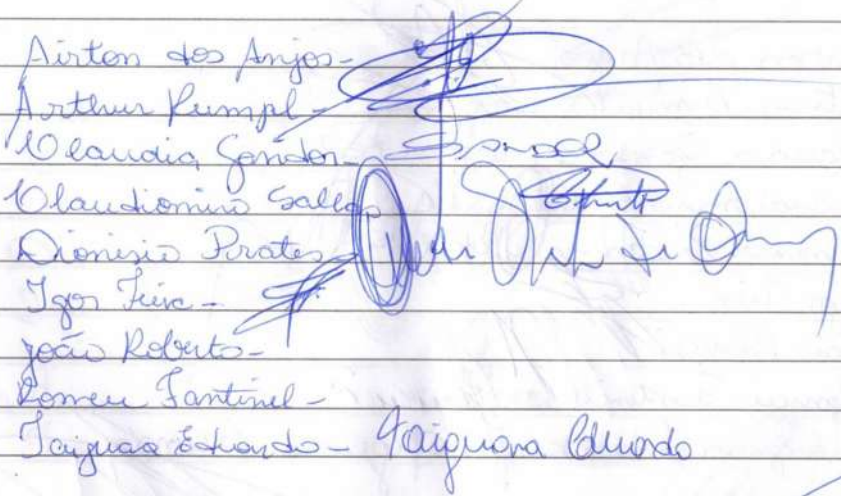 Airton dos Anjos -
Arthur Rumpl -
Claudia Sandor - SANDOR
Claudiomiro Salles
Dionizio Prates
Igor Feiva -
João Roberto -
Romeu Fantinel -
Taiguara Eduardo - Taiguara Eduardo